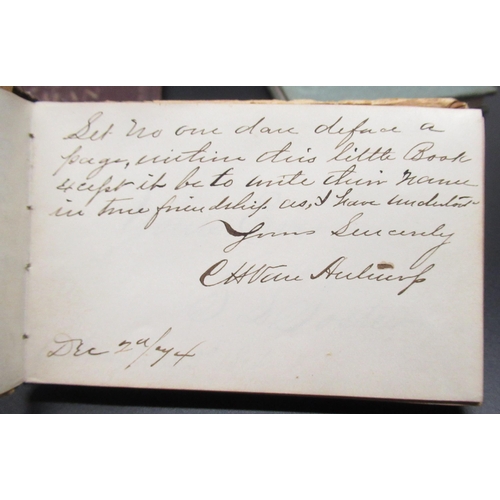 Let no one dare deface a
page, within this little Book
except it be to write their Name
in true friendship as, I have undertook
Yours Sincerely
C H Van
Dec /74